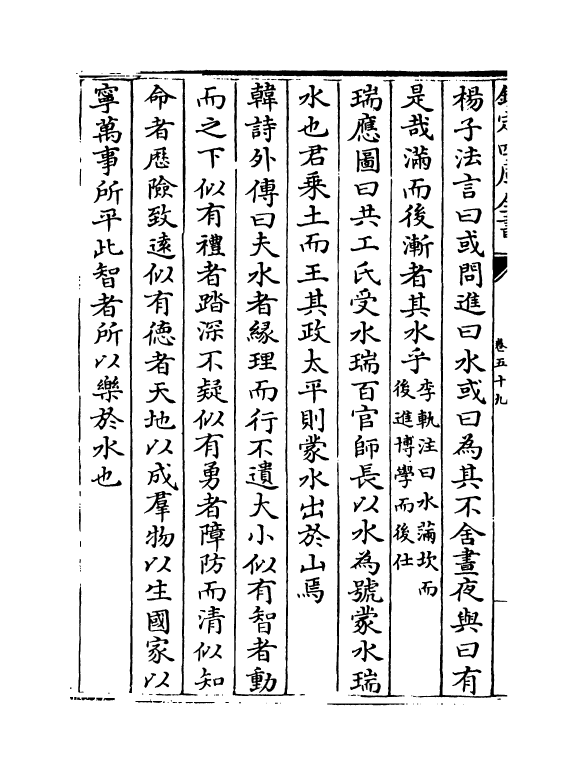 欽定四庫全書
卷五十九
楊子法言曰或問進曰水或曰為其不舍晝夜與曰有
是哉滿而後漸者其水乎李軌注曰水滿坎而後進博學而後仕
瑞應圖曰共工氏受水瑞百官師長以水為號蒙水瑞
水也君乗土而王其政太平則蒙水出於山焉
韓詩外傳曰夫水者緣理而行不遺大小似有智者動
而之下似有禮者踏深不疑似有勇者障防而清似知
命者歴險致逺似有德者天地以成羣物以生國家以
寧萬事所平此智者所以樂於水也